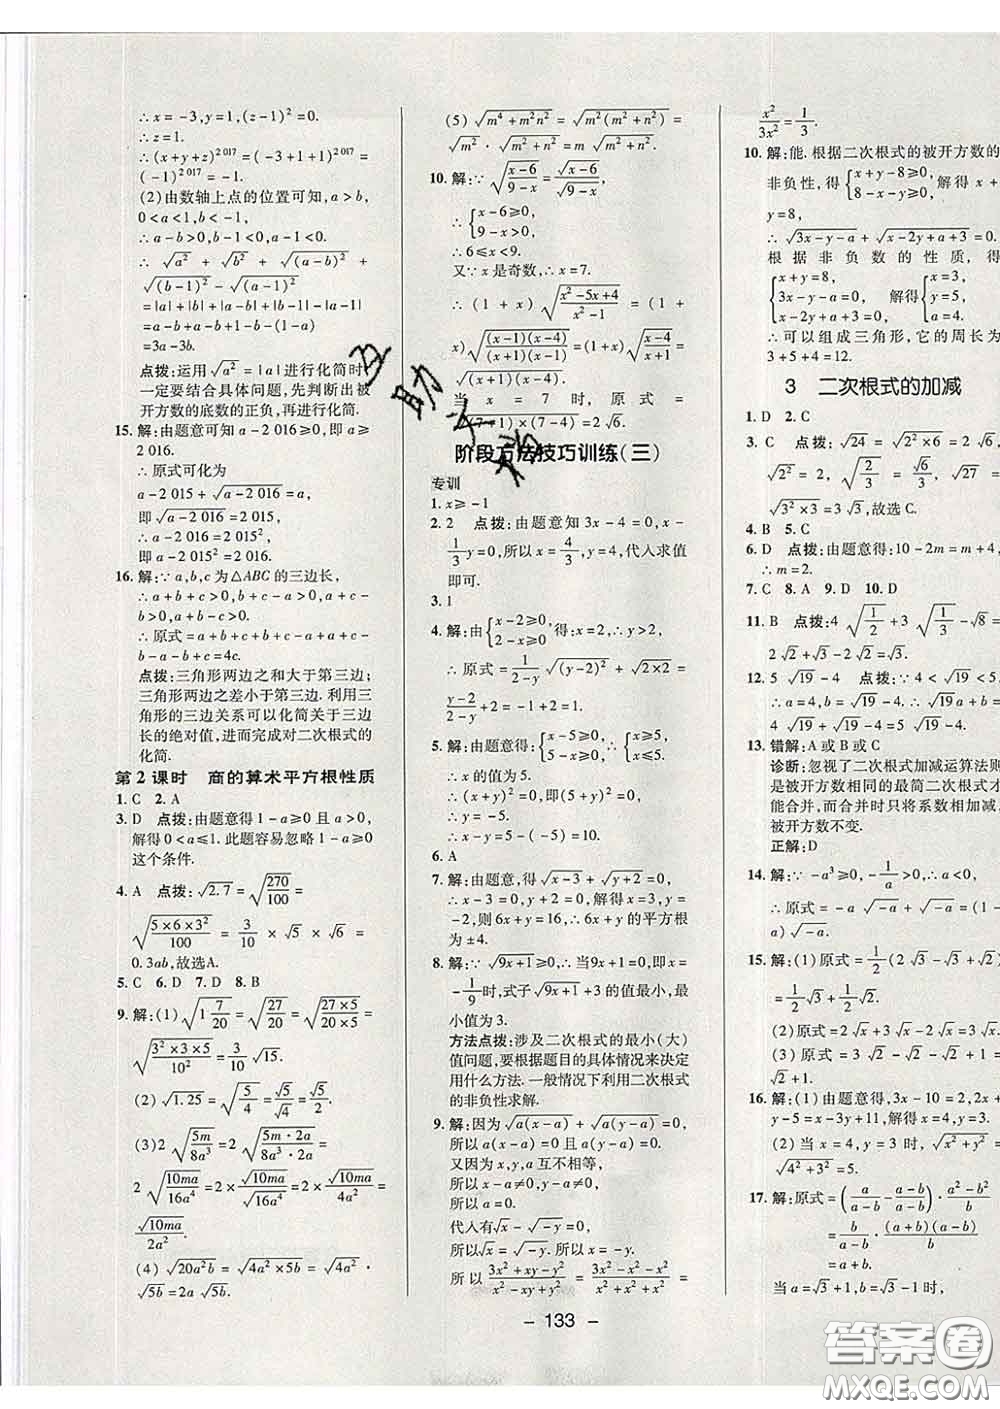 ∴x=-3,y=1,(z-1)²=0.
∴z=1.
∴(x+y+z)^{2 017}=(-3+1+1)^{2 017}=
(-1)^{2 017}=-1.
(2)由数轴上点的位置可知,a>b,
0<a<1,b<-1.
∴a-b>0,a-1<0,b-1<0.
∴√a² + √b² + √(a-b)² -
√(b-1)² - √(a-1)²
=|a|+|b|+|a-b|-|b-1|-|a-1|
=a-b+(a-b)+(b-1)+(a-1)
=3a-3b.
点拨:运用√a²=|a|进行化简时,
一定要结合具体问题,先判断出被
开方数的底数的正负,再进行化简.
15.解:由题意可知a-2 016≥0,即a≥
2 016.
∴原式可化为
a-2 015+√(a-2 016)=a,
即√(a-2 016)=2 015,
∴a-2 016=2 015²,
即a-2 015²=2 016.
16.解:∵a,b,c为△ABC的三边长,
∴a+b+c>0,b+c-a>0,
b-c-a<0,c+a-b>0.
∴原式=a+b+c+b+c-a-b+c+
a+c+a-b=4c.
点拨:三角形两边之和大于第三边;
三角形两边之差小于第三边.利用三
角形的三边关系可以化简关于三边长
的绝对值,进而完成对二次根式的
化简.
第2课时 商的算术平方根性质
1.C 2.A
3.D 点拨:由题意得1-a≥0且a>0,
解得0<a≤1.此题容易忽略1-a≥0
这个条件.
4.A 点拨:√2.7=√(270/100)=
√(5×6×3²/100) = 3/10 × √5 × √6 =
0.3ab,故选A.
5.C 6.D 7.D 8.B
9.解:(1)√(1 7/20)=√(27/20)=√(27×5/(20×5))=
√(3²×3×5/10²)=3/10√15.
(2)√1.25=√(5/4)=√5/√4=√5/2.
(3)2√(5m/8a³)=2√(5m·2a/(8a³·2a))=
2√(10ma/16a⁴)=2×√10ma/√16a⁴=2×√10ma/4a²=
√10ma/2a².
(4)√20a²b=√(4a²×5b)=√4a²·
√5b=2a√5b.
(5)√(m⁴+m²n²)=√(m²(m²+n²))=
√m²·√(m²+n²)=m√(m²+n²).
10.解:∵√((x-6)/(9-x))=√(x-6)/√(9-x),
∴{x-6≥0, 9-x>0,
∴6≤x<9.
又∵x是奇数,∴x=7.
∴(1+x)√((x²-5x+4)/(x²-1))=(1+
x)√((x-1)(x-4)/((x+1)(x-1)))=(1+x)√((x-4)/(x+1))
=√((x+1)(x-4)).
当x=7时,原式=
√((7+1)×(7-4))=2√6.
阶段方法技巧训练(三)
专训
1.x≥-1
2.2 点拨:由题意知3x-4=0,x-
1/3y=0,所以x=4/3,y=4,代入求值
即可.
3.1
4.解:由{x-2≥0, 2-x≥0得:x=2,∴y>2,
∴原式=1/(2-y)√(y-2)²+√(2×2)=
(y-2)/(2-y)+2=-1+2=1.
5.解:由题意得:{x-5≥0, 5-x≥0,∴{x≥5, x≤5,
∴x=5.
∴(x+y)²=(5+y)²=0,
∴y=-5.
∴x-y=5-(-5)=10.
6.A
7.解:由题意,得√(x-3)+√(y+2)=0,
∴x-3=0,y+2=0,解得x=3,y=
-2,则6x+y=16,∴6x+y的平方根
为±4.
8.解:∵√(9x+1)≥0,∴当9x+1=0,即x=
-1/9时,式子√(9x+1)+3的值最小,最
小值为3.
方法点拨:涉及二次根式的最小(大)
值问题,要根据题目的具体情况来决定
用什么方法.一般情况下利用二次根式
的非负性求解.
9.解:因为√(a(x-a))+√(a(y-a))=0,
所以a(x-a)=0且a(y-a)=0.
又因为a,x,y互不相等,
所以x-a≠0,y-a≠0.
所以a=0.
代入有√x-√-y=0,
所以√x=√-y.所以x=-y.
所以(3x²+xy-y²)/(x²-xy+y²)=(3x²-x²-x²)/(x²+x²+x²)=
x²/3x²=1/3.
10.解:能.根据二次根式的被开方数的
非负性,得{x+y-8≥0, 8-x-y≥0,解得x+
y=8,
∴√(3x-y-a)+√(x-2y+a+3)=0.
根据非负数的性质,得
{x+y=8, 3x-y-a=0, x-2y+a+3=0,解得{x=3, y=5, a=4.
∴可以组成三角形,它的周长为
3+5+4=12.
3 二次根式的加减
1.D 2.C
3.C 点拨:√24=√(2²×6)=
√2²=2,√(2/3)=√6/3,√27=
√(3²×3)=3√3,故选C.
4.B 5.C
6.D 点拨:由题意得:10-2m=m+4,
∴m=2.
7.C 8.A 9.D 10.D
11.B 点拨:4√(1/2)+3√(1/3)-√8=
2√2+√3-2√2=√3.
12.5√19-4 点拨:∵4<√19<5,
∴a=4,b=√19-4,
4√19+√19-4=5√19-4.
13.错解:A或B或C
诊断:忽视了二次根式加减运算法则
是被开方数相同的最简二次根式才
能合并,而合并时只将系数相加减,
被开方数不变.
正解:D
14.解:∵-a³≥0,-1/a>0,∴a<0.
∴原式=-a√-a+√-a=(1-
a)√-a.
15.解:(1)原式=1/2(2√3-√3+√2)
=1/2√3+1/2√2.
(2)原式=2√x+3√x-2√x=3√x.
(3)原式=3√2-√2-√2+1=
√2+1.
16.解:(1)由题意得,3x-10=2,2x+
y-5=x-3y+11,解得x=4,y=3.
(2)当x=4,y=3时,√(x²+y²)=
√(4²+3²)=5.
17.解:原式=(a/(a-b)-(a-b)/(a-b))·(a²-b²)/b=
b/(a-b)·(a+b)(a-b)/b
=a+b.
当a=√3+1,b=√3-1时,
- 133 -
互助文档
答案圈
MXQE.COM